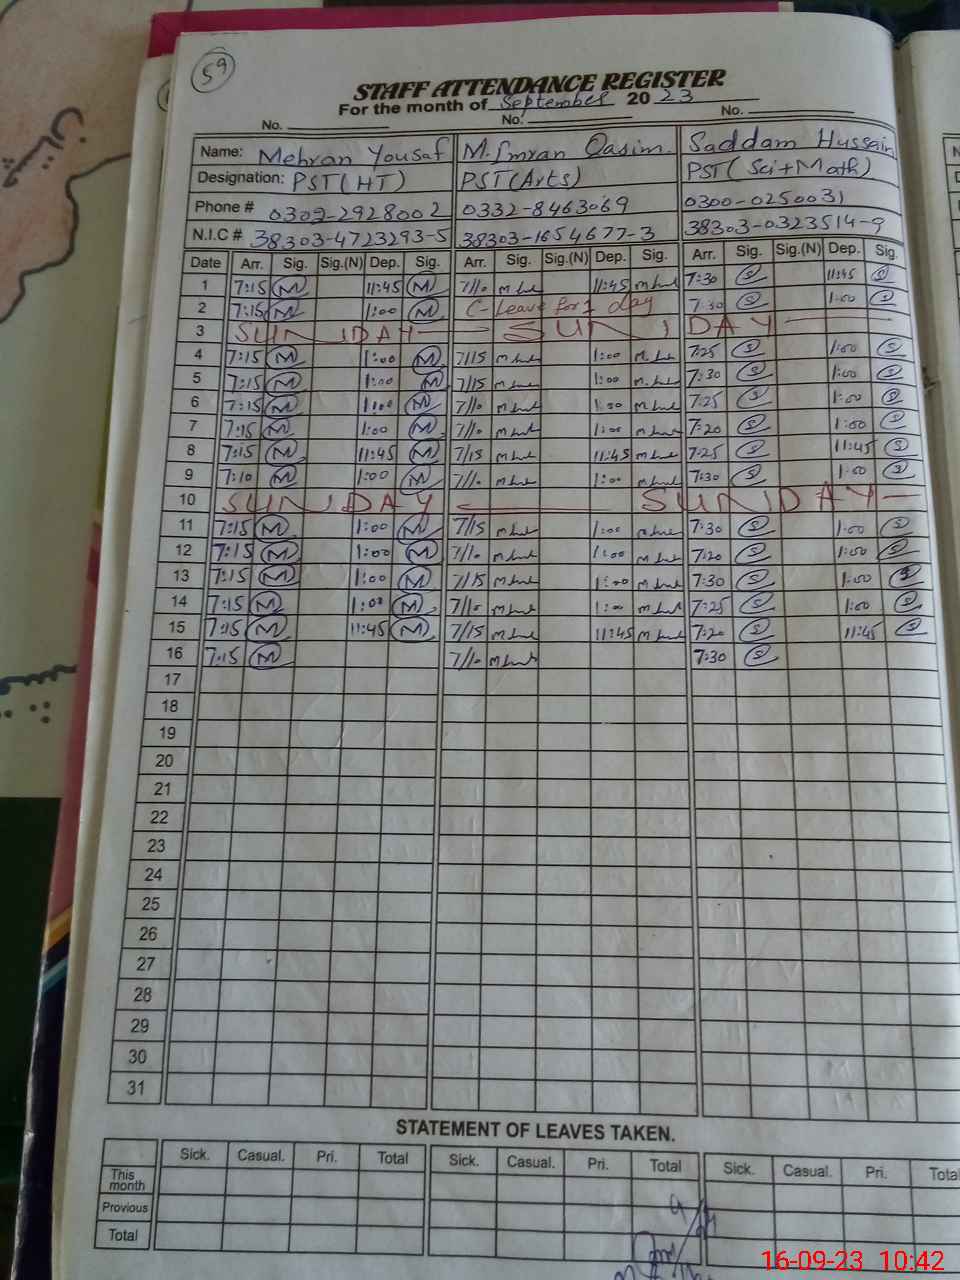 59
STAFF ATTENDANCE REGISTER
For the month of September 2023
No. No. No.
Name: Mehran Yousaf M. Imran Qasim. Saddam Hussain
Designation: PST(HT) PST(Arts) PST(Sci+Math)
Phone # 0302-2928002 0332-8463069 0300-0250031
N.I.C # 38303-4723293-5 38303-1654677-3 38303-0323514-9
Date Arr. Sig. Sig.(N) Dep. Sig. Arr. Sig. Sig.(N) Dep. Sig. Arr. Sig. Sig.(N) Dep. Sig.
1 7:15 M 11:45 M 7/10 11:45 7:30 S 11:45 S
2 7:15 M 1:00 M C-Leave for 1 day 7:30 S 1:00 S
3 SUNDAY SUNDAY
4 7:15 M 1:00 M 7/15 1:00 7:25 S 1:00 S
5 7:15 M 1:00 M 7/15 1:00 7:30 S 1:00 S
6 7:15 M 1:00 M 7/10 1:00 7:25 S 1:00 S
7 7:15 M 1:00 M 7/10 1:00 7:20 S 1:00 S
8 7:15 M 11:45 M 7/15 11:45 7:25 S 11:45 S
9 7:10 M 1:00 M 7/10 1:00 7:30 S 1:00 S
10 SUNDAY SUNDAY
11 7:15 M 1:00 M 7/15 1:00 7:30 S 1:00 S
12 7:15 M 1:00 M 7/10 1:00 7:20 S 1:00 S
13 7:15 M 1:00 M 7/15 1:00 7:30 S 1:00 S
14 7:15 M 1:00 M 7/10 1:00 7:25 S 1:00 S
15 7:15 M 11:45 M 7/15 11:45 7:20 S 11:45 S
16 7:15 M 7/10 7:30 S
17
18
19
20
21
22
23
24
25
26
27
28
29
30
31
STATEMENT OF LEAVES TAKEN.
Sick. Casual. Pri. Total Sick. Casual. Pri. Total Sick. Casual. Pri. Total
This month
Provious
Total
16-09-23 10:42